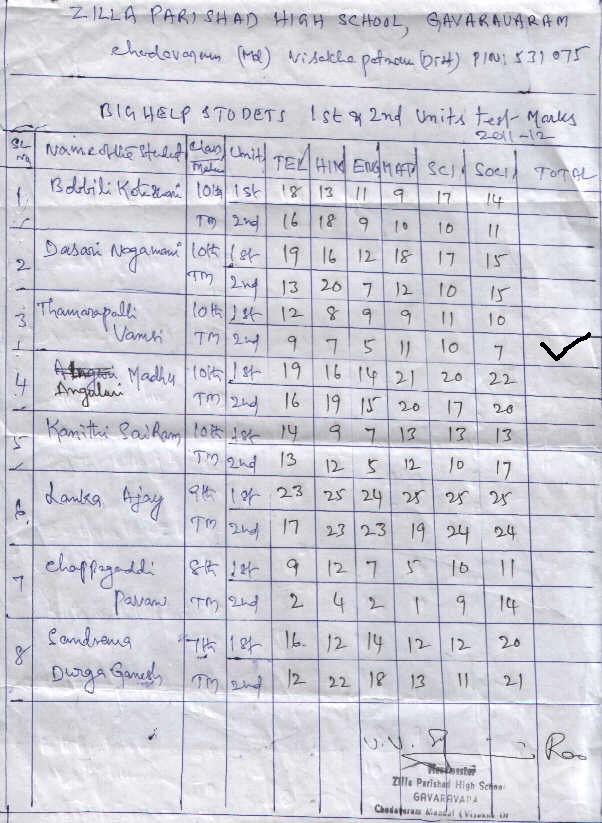 ZILLA PARISHAD HIGH SCHOOL, GAVARAVARAM
chodavaram (Md) Visakhapatnam (Dist) PIN: 531 075
BIG HELP STODETS 1st & 2nd Units test Marks
2011-12
SL No Name of the Student Class Medi Unit TEL HIN ENG MAT SCI SOCI TOTAL
1 Bobbili Koteswari 10th 1st 18 13 11 9 17 14
TM 2nd 16 18 9 10 10 11
2 Dasari Nagamani 10th 1st 19 16 12 18 17 15
TM 2nd 13 20 7 12 10 15
3 Thamarapalli 10th 1st 12 8 9 9 11 10
Vamsi TM 2nd 9 7 5 11 10 7
4 Madhu 10th 1st 19 16 14 21 20 22
Angaluri TM 2nd 16 19 15 20 17 20
5 Kamithi Sai Ram 10th 1st 14 9 7 13 13 13
TM 2nd 13 12 5 12 10 17
6. Lanka Ajay 9th 1st 23 25 24 25 25 25
TM 2nd 17 23 23 19 24 24
7 Chappagaddi 8th 1st 9 12 7 5 10 11
Pavani TM 2nd 2 4 2 1 9 14
8 7th 1st 16. 12 14 12 12 20
Durga Ganesh TM 2nd 12 22 18 13 11 21
V.V. Rao
Headmaster
Zilla Parishad High School
GAVARAVARA
Chodavaram Mandal